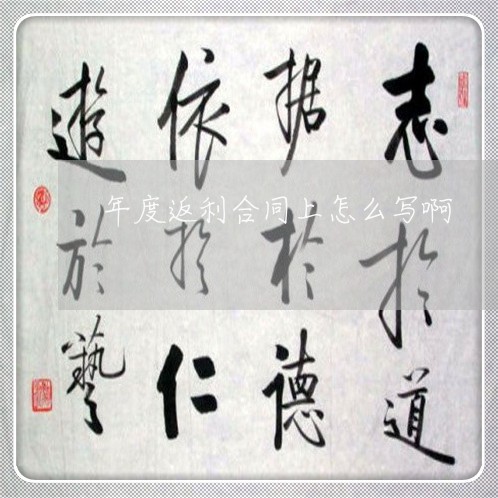 志於道
据於德
依於仁
遊於藝
年度返利合同上怎么写啊